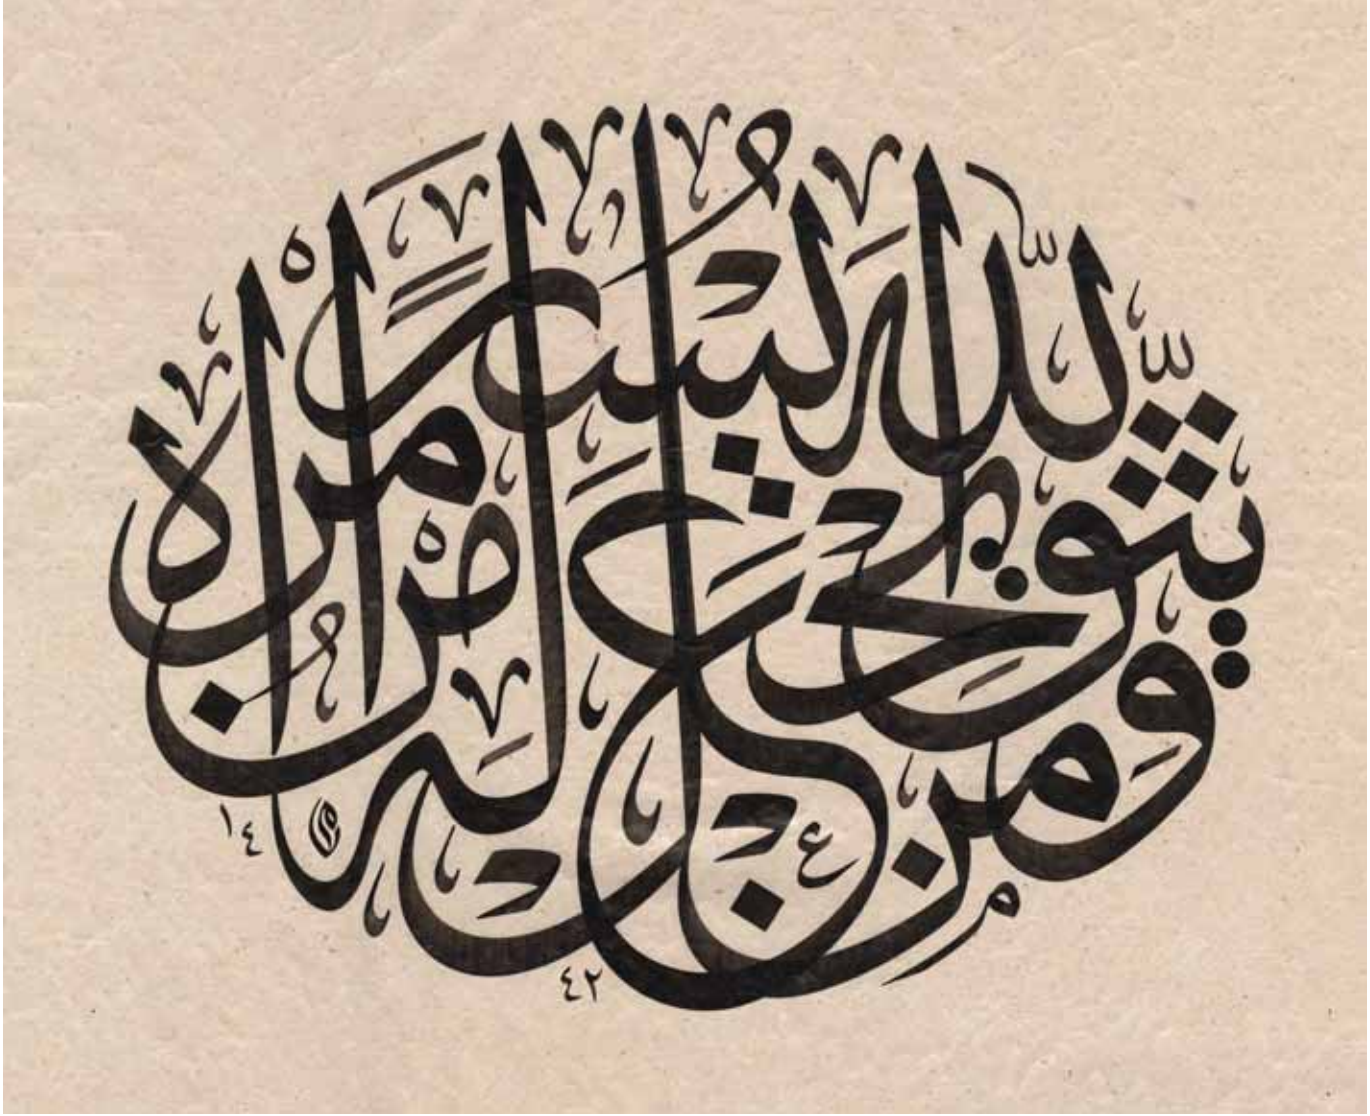 ومن يتق الله يجعل له من أمره يسرا
١٤
٤٢